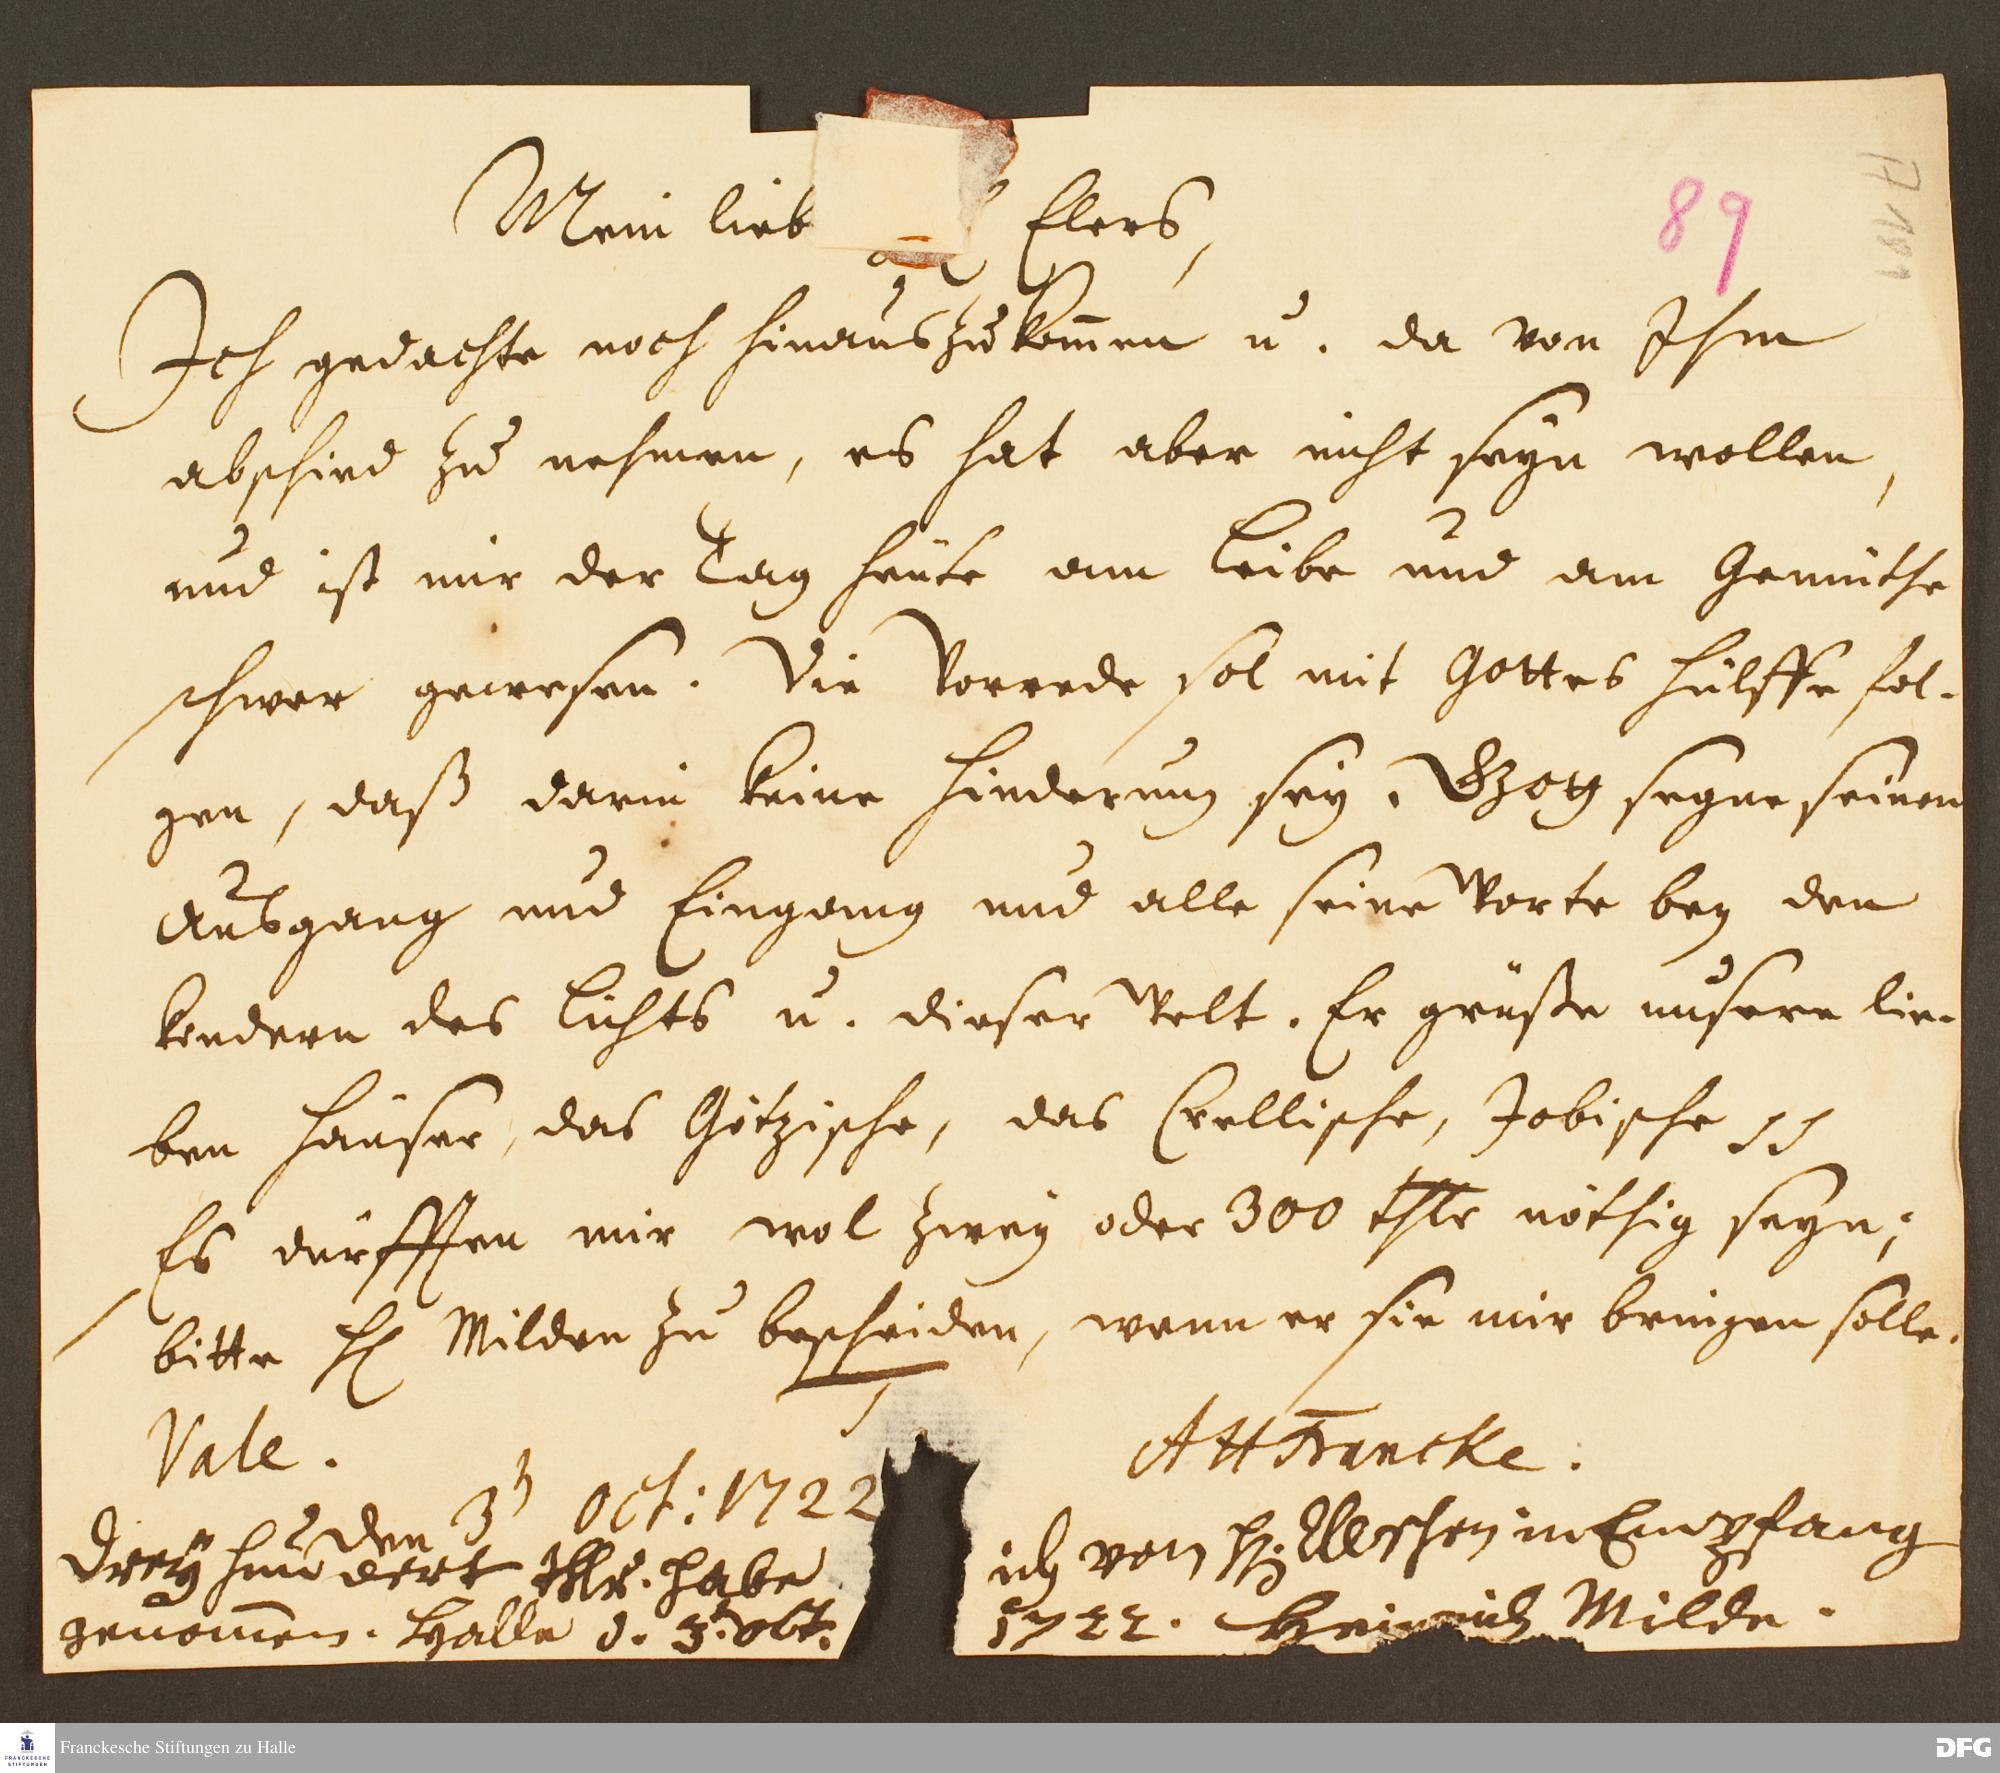 89
Mein lieb Elers,
Ich gedachte noch hinauszukom̄en u. da von Ihm
abschied zu nehmen, es hat aber nicht seyn wollen,
und ist mir der Tag heute am Leibe und am Gemüthe
schwer gewesen. Die Vorrede sol mit Gottes Hülffe fol-
gen, daß darin keine Hinderung sey. Gott segne seinen
Ausgang und Eingang und alle seine Worte bey den
Kindern des Lichts u. dieser Welt. Er grüße unsere lie-
ben Häuser, das Götzische, das Crellische, Jobische
Es dürfften mir wol zwey oder 300 thlr nöthig seyn;
bitte H Milden zu bescheiden, wenn er sie mir bringen solle.
Vale. AHFrancke.
den 3t Oct: 1722
Drey hundert thlr. habe ich von H. in Empfang
genom̄en. Halle d. 3t. Obt. 1722. Heinrich Milde.
Franckesche Stiftungen zu Halle
FRANCKESCHE
STIFTUNGEN
DFG